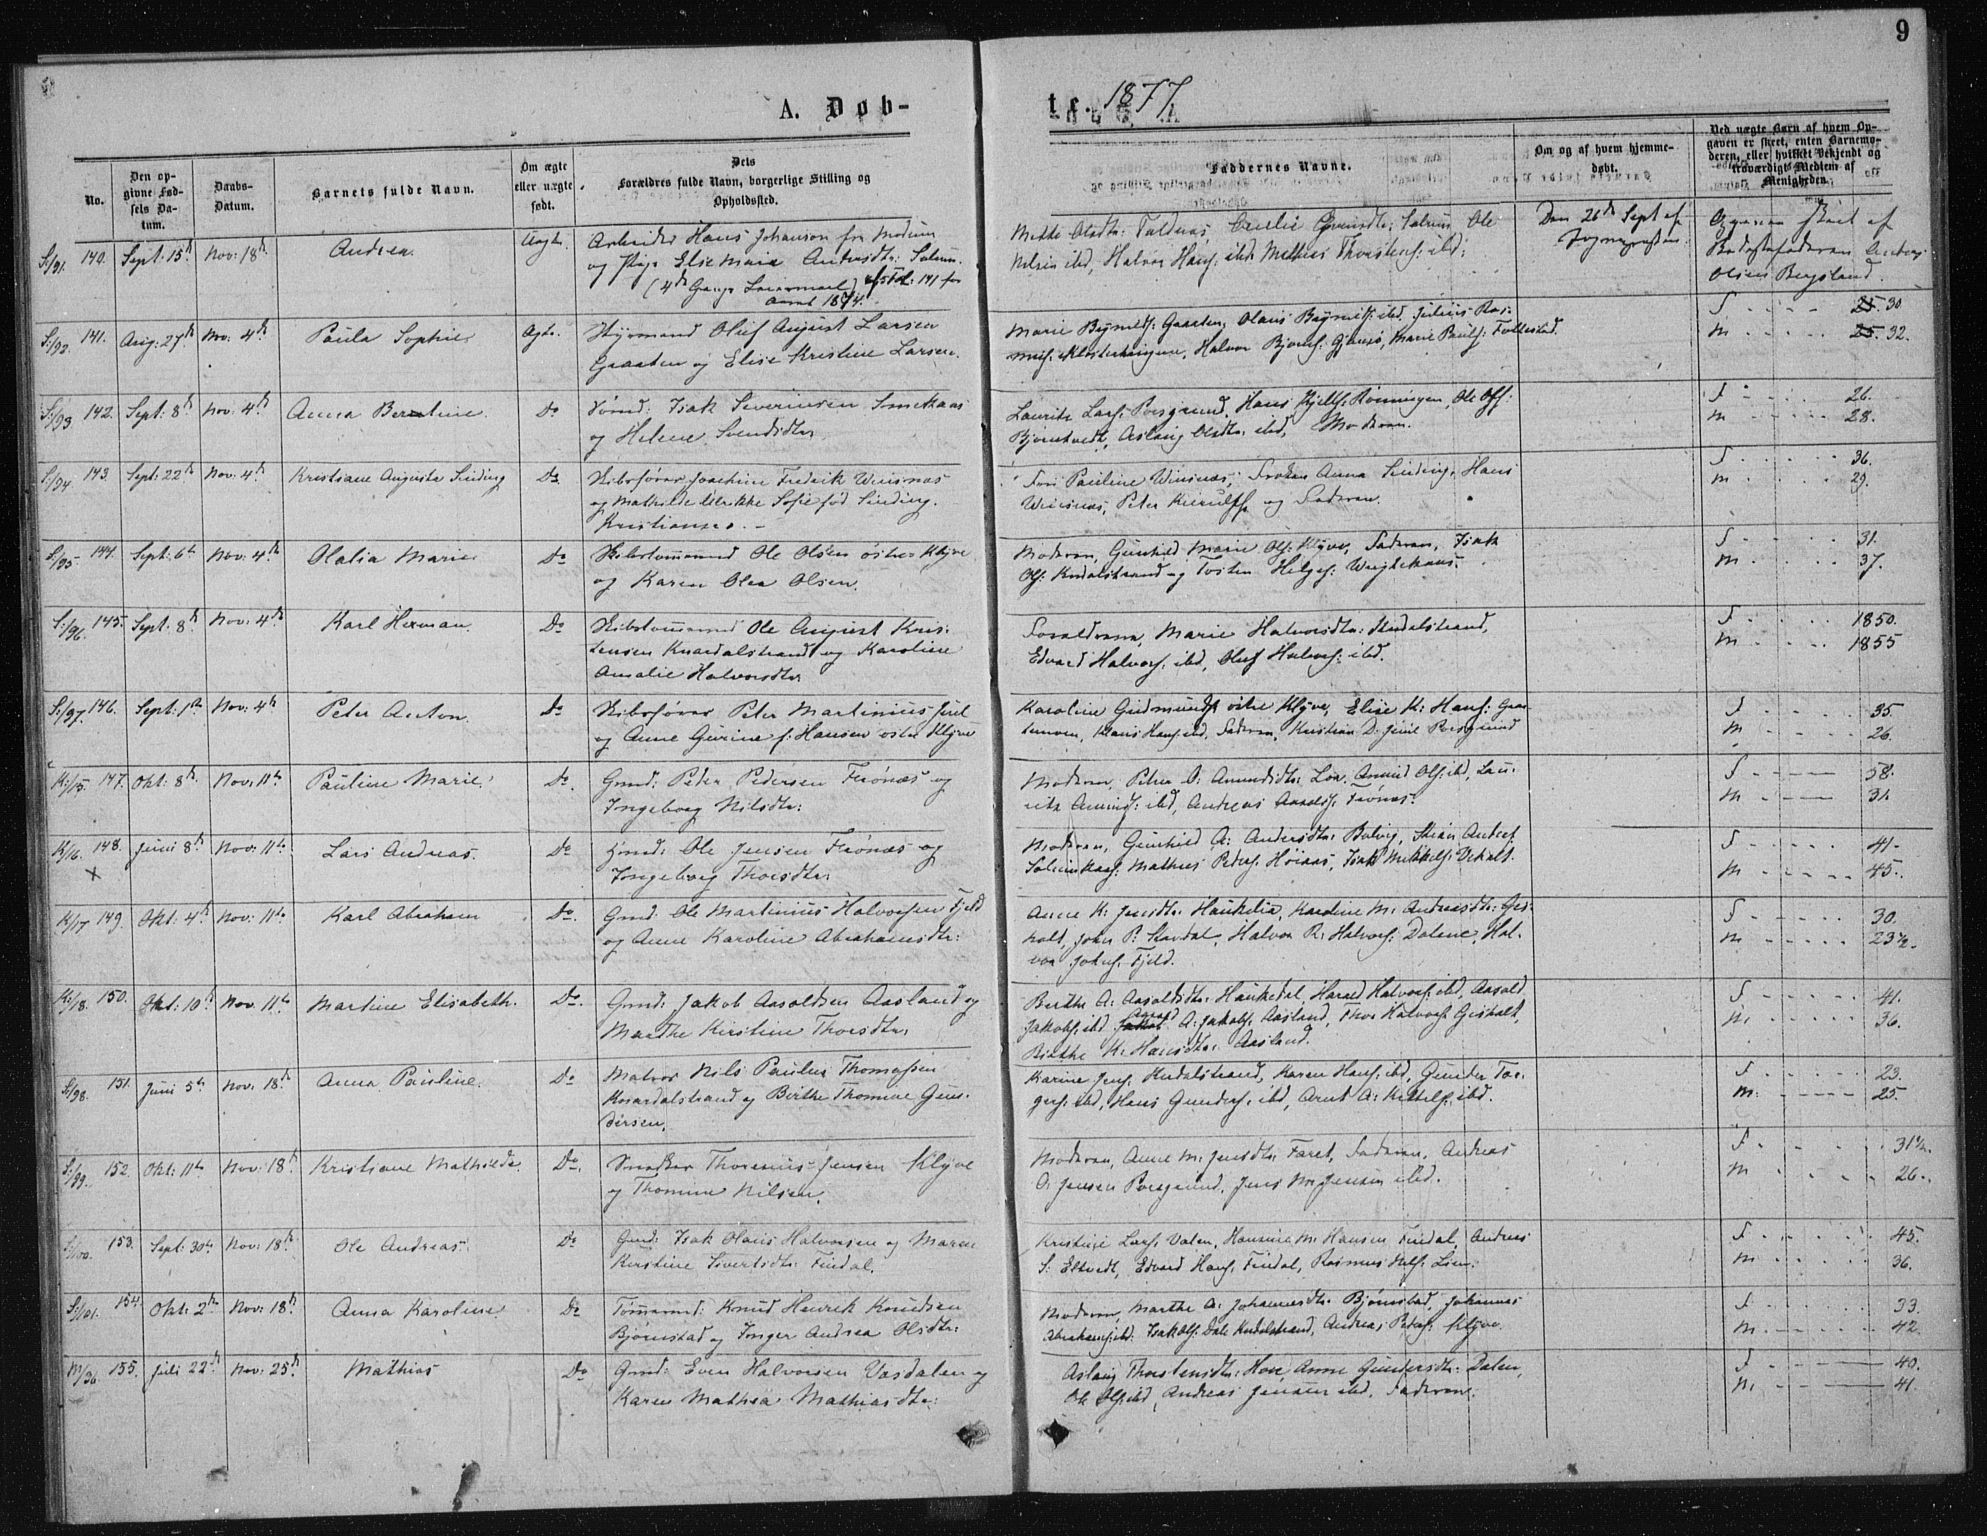 9
A. Døb-
te. 1877
No.
Den op-
givne Fød-
sels Da-
tum.
Daabs-
Datum.
Barnets fulde Navn.
Om ægte
eller uægte
født.
Dets
Forældres fulde Navn, borgerlige Stilling og
Opholdssted.
Faddernes Navne.
Om og af hvem hjemme-
døbt.
Ved uægte Barn af hvem Op-
gaven er skeet, enten Barnemo-
deren, eller hvilket bekjendt og
troværdigt Medlem af
Menigheden.
S:/91. 140. Sept. 15de Nov: 18de Andrea. Uægte. Arbeider Hans Johanson fra Modum
og Pige Else Maria Andersdtr: Solum.
(4de Gangs Leiermaal) 141 for
Aaret 1874.
Ole
Nilsen ibd, Halvor Hans: ibd. Mathias Thorstens: ibd:
Den 26de Sept af
Sognepresten.
Opgaven skeet af
Anders
Olsen Bergsland.
S:/92. 141. Aug: 27de Nov: 4de Paula Sophie Ægte. Styrmand Oluf August Larsen
Graaten og Elise Kristine Larsen.
Halvor Bjørns: Marie Pauls: Follestad.
F 25. 30
M 25. 32.
S:/93 142. Sept: 8de Nov: 4de Anna Berntine. Do Tømd: Isak Severinsen Smukaas
og Helene Svendsdtr,
Laurits Lars: Porsgrund, Hans Kjells: Rønningen, Ole Ols:
Bjørntvedt, Aslaug Olsdtr: ibd, Moderen.
F 26.
M 28.
S:/94 143. Sept: 22de Nov: 4de Kristiane Augusta Sinding Do. Skibsfører Joachim Fredrik Winsnæs
og Mathilde Ulrikke Sofie fød Sinding.
Kristiansø. -
Fru Pauline Winsnæs, Frøken Anna Sinding, Hans
Winsnæs, Peter Kierulff, og Faderen.
F 36.
M 29.
S:/95. 144. Sept: 6te Nov: 4de Olalia Marie Do Skibstømmermand Ole Olsen østre Klyve
og Karen Olea Olsen.
Moderen, Gunhild Marie Ols: Klyve, Faderen, Isak
Ols: Kndalstrand og Tosten Helges:
F 31.
M 37.
S:/96. 145. Sept: 8de Nov: 4de Karl Herman. Do Skibstømmermand Ole August Kris-
tensen Knardalstrand og Karoline
Amalie Halvorsdtr
Forældrene, Marie Halvorsdtr: Kndalstrand,
Edvard Halvors: ibd, Oluf Halvors: ibd.
F 1850.
M 1855
S:/97. 146. Sept: 1ste Nov: 4de Peter Anton. Do Skibsfører Peter Martinius Juel
og Anne Gurine f: Hansen østre Klyve
Karoline Gudmunds: østre Klyve, Elise K: Hans: Graa-
tenmoen, Klaus Hans: ibd, Faderen, Kristian D: Juul Porsgrund
F 35.
M 26.
K:/15. 147. Okt: 8de Nov: 11te Pauline Marie. Do. Grmd: Peder Pedersen Frønæs og
Ingeborg Nilsdtr:
Moderen, Petra O: Amundsdtr: Løv, Amund Ols: ibd, Lau-
rits Amunds: ibd, Andreas Frønæs.
F 58.
M 31
K/16. 148. Juni 8de Nov: 11te Lars Andreas. Do Ole Jensen Frønæs og
x
Ingeborg Thorsdtr
Moderen, Gunhild A: Andersdtr: Bolvig,
Mathias Peders: Høiaas, Isak Mikkels:
F 41.
M 45.
K/17 149. Okt: 4de Nov: 11te Karl Abraham Do. Grmd. Ole Martinius Halvorsen Fjeld
og Anne Karoline Abrahamsdtr:
Anne K: Jensdtr: Haukelia, Karoline M: Andreasdtr: Gis-
holt, John P: Stordal, Halvor R: Halvors: Dalene, Hal-
vor Johns: Fjeld.
F 30.
M 23½.
K:/18. 150. Okt: 10de Nov: 11te Martine Elisabeth. Do. Grmd: Jakob Aasoldsen Aasland og
Marthe Kirstine Thorsdtr,
Berthe A: Aasoldsdtr: Haukedal, Harald Halvors: ibd, Aasold
Jakobs: ibd, A: Jakobs: Aasland, Thor Halvors: Gisholt,
Birthe K: Hansdtr: Aasland.
F 41.
M. 36.
S:/98. 151. Juni 5te Nov: 18de Anna Pauline. Do Matros Nils Paulus Thomassen
Knardalstrand og Birthe Thomine Gun-
dersen.
Karine Jens: Kndalstrand, Karen Hans: ibd, Gunder Tor-
gers: ibd, Hans Gunders: ibd, Arnt A: Kittels: ibd.
F 23.
M: 25.
S:/99. 152. Okt: 11te Nov: 18de Kristiane Mathilde. Do. Snedker Thorenius Jensen Klyve
og Thomine Nilsen.
Moderen, Anne M: Jensdtr: Faret, Faderen, Andreas
A: Jensen Porsgrund, Jens Jensen ibd.
F 31½.
M 26.
S:/100. 153. Sept: 30te Nov: 18de Ole Andreas. Do Grmd: Isak Olaus Halvorsen og Maren
Kirstine Sivertsdtr: Findal.
Kristine Lars: Valen, Hansine M: Hansen Findal, Andreas
S: Eltvedt, Edvard Hans: Findal, Rasmus Nils: Lien.
F 45.
M 36.
S:/101. 154. Okt: 2de Nov: 18de Anna Karoline. Do Tømmermd: Knud Henrik Knudsen
Bjørnstad og Inger Andrea Olsdtr:
Moderen, Marthe A: Johannesdtr: Bjørnstad, Johannes
Abrahams: ibd. Isak Ols: Dale Kndalstrand, Andreas Peders: Klyve.
F 33.
M 42.
M/36. 155. Juli 22de Nov: 25de Mathias Do Grmd: Even Halvorsen Vasdalen og
Karen Mathea Mathiasdtr:
Aslaug Thorstensdtr: Hoie, Anne Gundersdtr: Dalen,
Ole Ols: ibd, Andreas Jensen ibd, Faderen.
F 40.
M. 41.